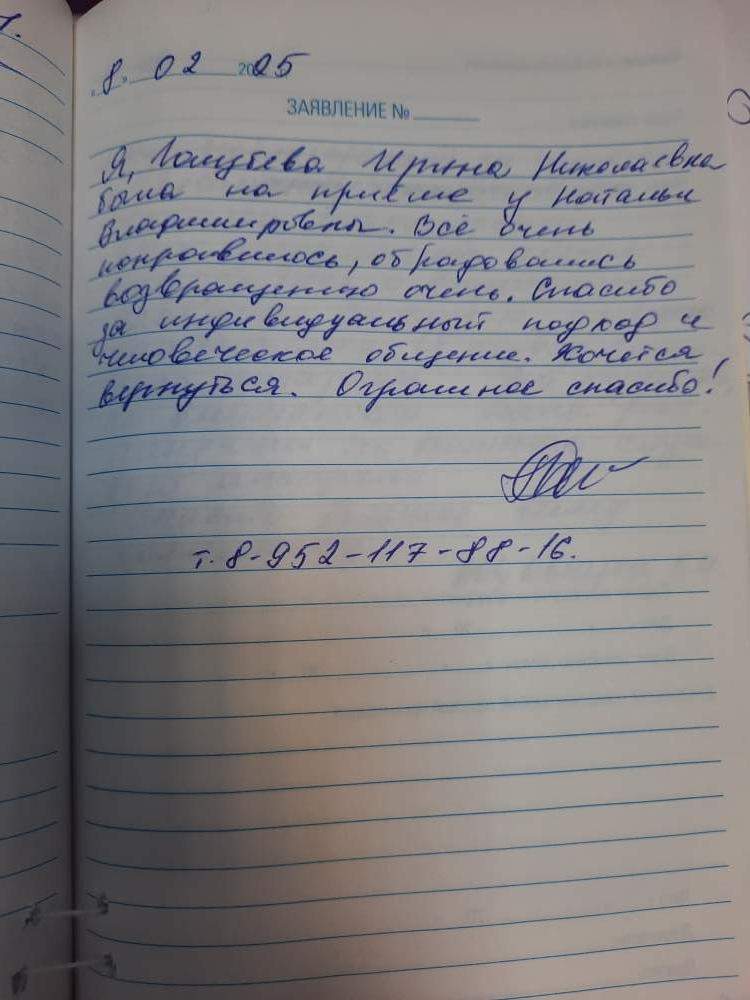 «8» 02 2025
ЗАЯВЛЕНИЕ №
Я, Голубева Ирина Николаевна
была на приёме у Натальи
Владимировны. Всё очень
понравилось, обрадовались
возвращению очень. Спасибо
за индивидуальный подход и
человеческое общение. Хочется
вернуться. Огромное спасибо!
т. 8-952-117-88-16.